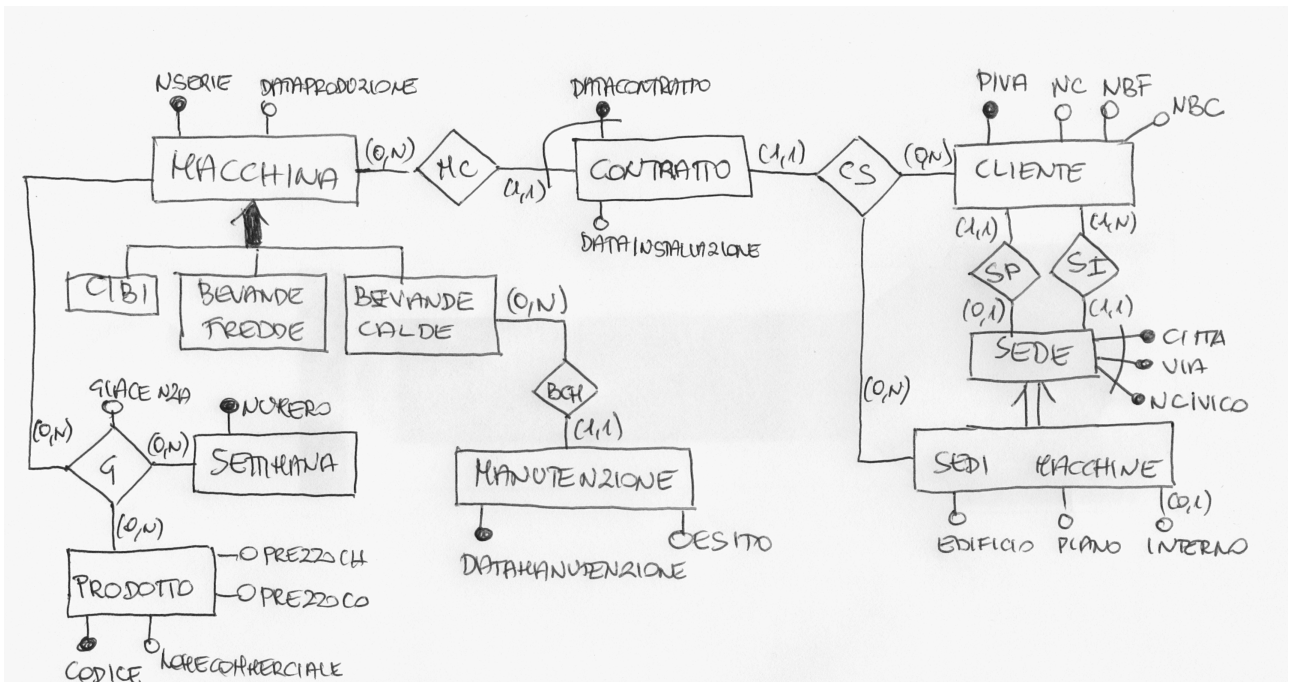 NSERIE
DATAPRODUZIONE
DATACONTRATTO
PIVA
NC
NBF
NBC
MACCHINA
(0,N)
MC
(1,1)
CONTRATTO
(1,1)
CS
(0,N)
CLIENTE
DATAINSTALLAZIONE
(1,1)
(1,N)
SP
SI
(0,1)
(1,1)
CIBI
BEVANDE
FREDDE
BEVANDE
CALDE
(0,N)
SEDE
CITTA
VIA
NCIVICO
BCM
(1,1)
(0,N)
GIACENZA
NUMERO
(0,N)
G
(0,N)
SETTIMANA
(0,N)
MANUTENZIONE
SEDI MACCHINE
(0,1)
EDIFICIO
PIANO
INTERNO
DATAMANUTENZIONE
ESITO
PRODOTTO
PREZZOCH
PREZZOCO
CODICE
NOMECOMMERCIALE